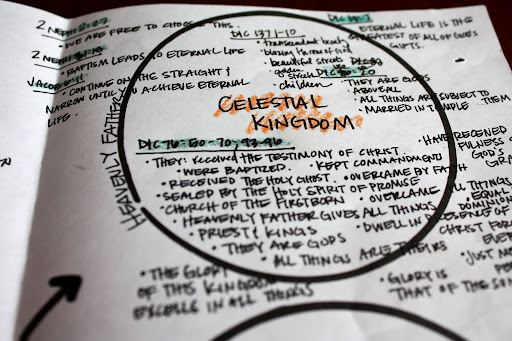 2 NEPHI 2:27
• WE ARE FREE TO CHOOSE THIS.
2 NEPHI 31:
• BAPTISM LEADS TO ETERNAL LIFE
JACOB 6:11
• CONTINUE ON THE STRAIGHT &
NARROW UNTIL YOU ACHIEVE ETERNAL
LIFE.
HEAVENLY FATHER
D&C 137:1-10
• Transcendent beauty
• blazing throne of God
• beautiful streets
golden
streets
• children
D&C 14:7
• ETERNAL LIFE IS THE
GREATEST OF ALL OF GOD'S
GIFTS.
D&C
20
• THEY ARE GODS
• ABOVE ALL
• ALL THINGS ARE SUBJECT TO
THEM
• MARRIED IN TEMPLE
CELESTIAL
KINGDOM
D&C 76:50-70, 92-96
• THEY RECEIVED THE TESTIMONY OF CHRIST.
• WERE BAPTIZED. • KEPT COMMANDMENTS
• RECEIVED THE HOLY GHOST. • OVERCAME BY FAITH
• SEALED BY THE HOLY SPIRIT OF PROMISE
• CHURCH OF THE FIRSTBORN • OVERCAME ALL THINGS
• HEAVENLY FATHER GIVES ALL THINGS
• PRIEST & KINGS • DWELL IN PRESENCE OF
• THEY ARE GODS CHRIST FOR
• ALL THINGS ARE THEIRS
• HAVE RECEIVED
FULLNESS OF
GOD'S
• EQUAL
DOMINION
• JUST
• THE GLORY
OF THIS KINGDOM
EXCELLS IN ALL THINGS
• GLORY IS
THAT OF THE